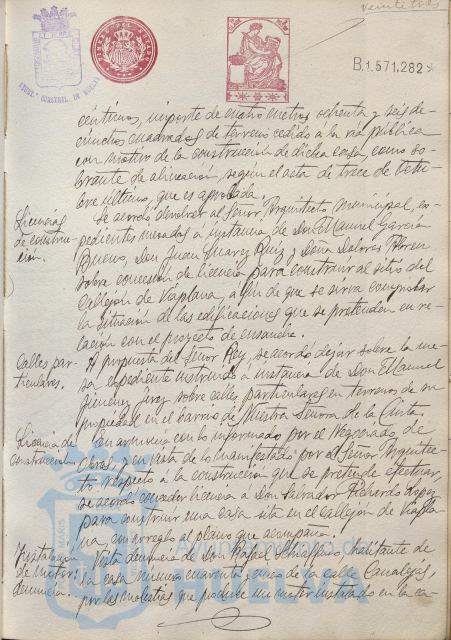 veintitres
B.1.571.282
céntimos, importe de cuatro metros ochenta y seis de-
címetros cuadrados de terreno cedido a la vía pública
con motivo de la construcción de dicha casa, como so-
brante de alineación, según el acta de trece de Octu-
bre último, que es aprobada.
Licencias
de construc-
ción.
Se acordó devolver al Señor Arquitecto Municipal, ex-
pedientes incoados a instancia de Don Manuel García
Bueno, Don Juan Suarez Ruiz y Doña Dolores
sobre concesión de licencia para construir al sitio del
Callejón de Viaplana, a fin de que se sirva comprobar
la situación de las edificaciones que se pretenden en re-
lación con el proyecto de ensanche.
Calles par-
ticulares.
A propuesta del Señor Rey, se acordó dejar sobre la me-
sa expediente instruido a instancia de Don Manuel
Jimenez Jerez sobre calles particulares en terrenos de su
propiedad en el barrio de Nuestra Señora de la Cinta.
Licencia de
construcción
En armonía con lo informado por el Negociado de
Obras, y en vista de lo manifestado por el Señor Arquitec-
to respecto a la construcción que se pretende efectuar,
se acordó conceder licencia a Don Salvador Pichardo Lopez
para construir una casa sita en el Callejón de Viapla-
na, con arreglo al plano que acompaña.
Instalacion
de motor:
denuncia.
Vista denuncia de Don Rafael habitante de
la casa número cuarenta y cinco de la calle Canalejas,
por las molestias que produce un motor instalado en la ca-